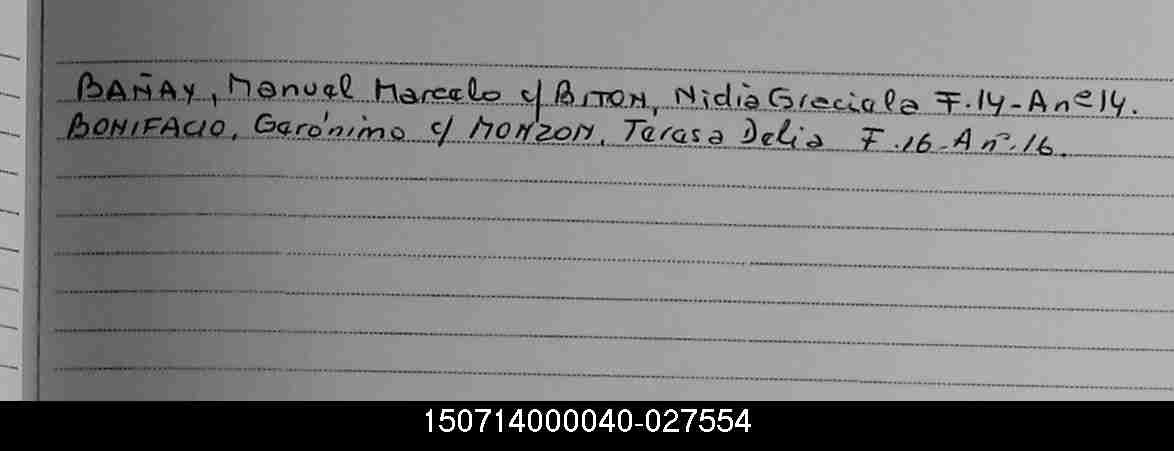 BAÑAY, Manuel Marcelo c/ BITON, Nidia Graciela F.14-A nº 14.
BONIFACIO, Gerónimo c/ MONZON, Teresa Delia F.16-A nº.16.
150714000040-027554